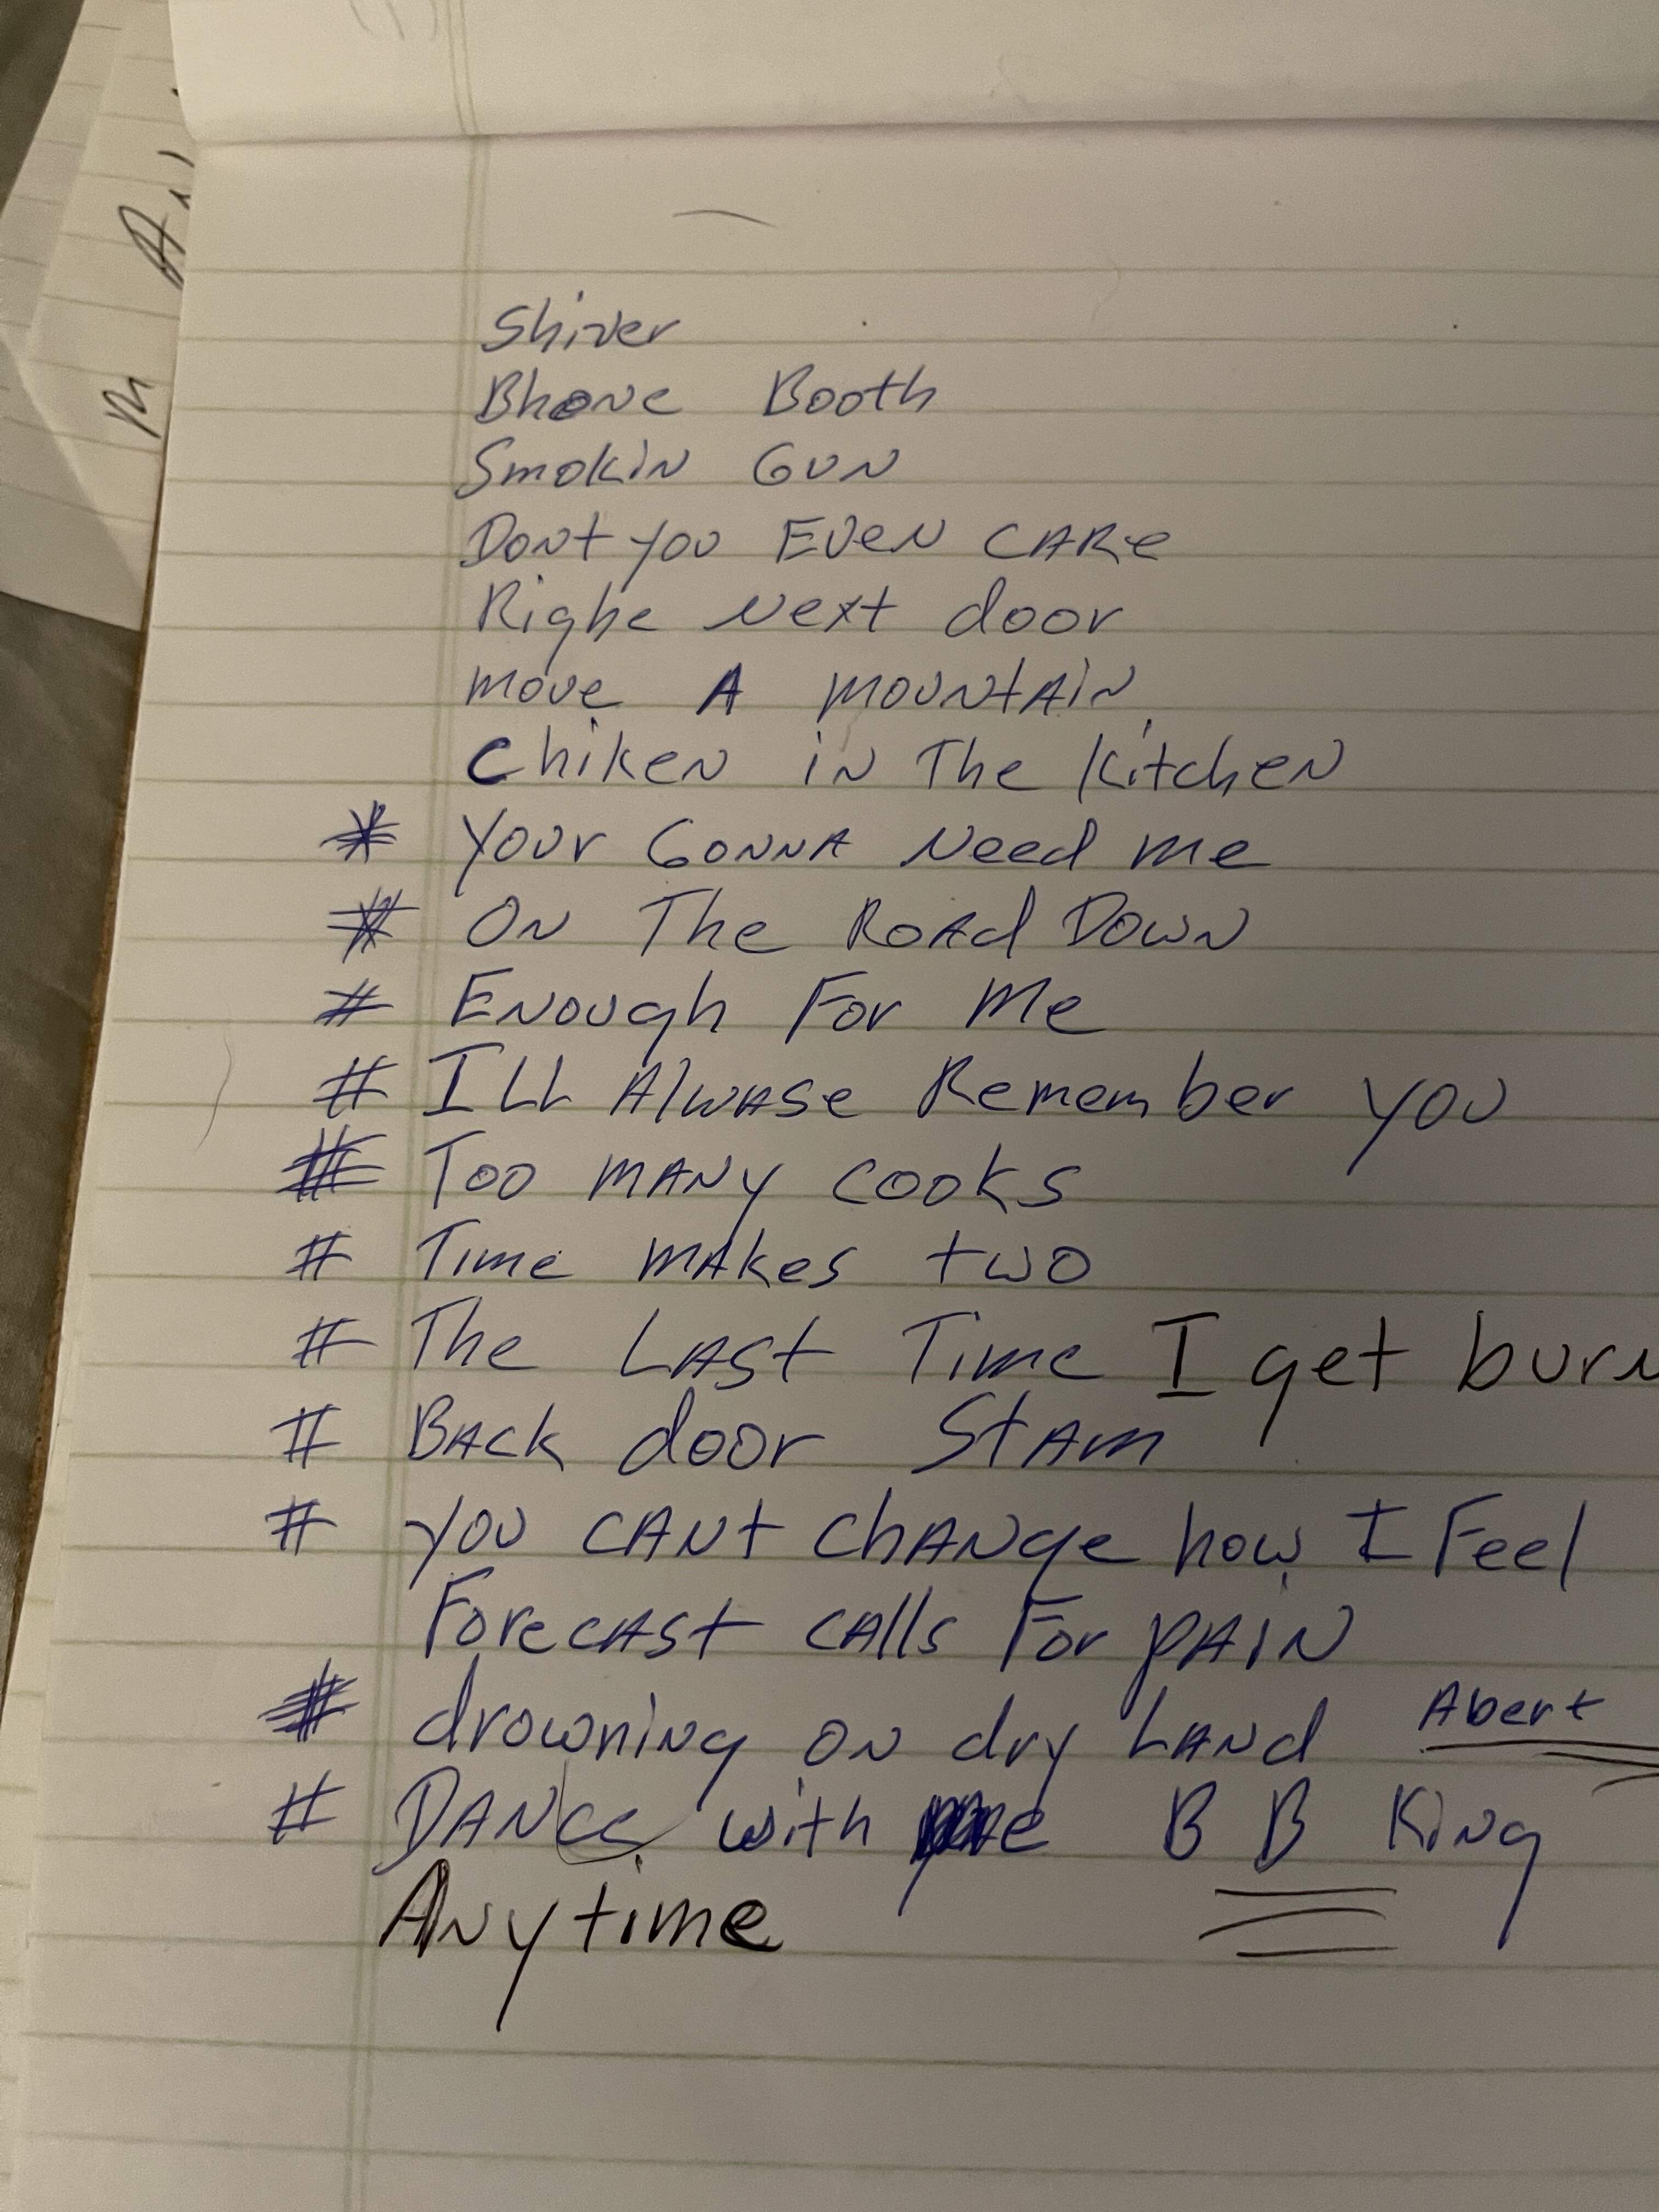 Shiver
Bhone Booth
Smokin Gun
Dont you Even CARe
Righe Next door
move A mountAin
Chiken in The Kitchen
* Your GonnA Need me
# On The RoAd Down
# Enough For Me
# ILL AlwASe Remember you
# Too mANy cooks
# Time mAkes two
# The LASt Time I get burn
# BAck door StAm
# you CANt chANge how I Feel
Forecast cAlls For pAiN
# drowning on dry LANd Abert
# DANce with me B B King
Anytime